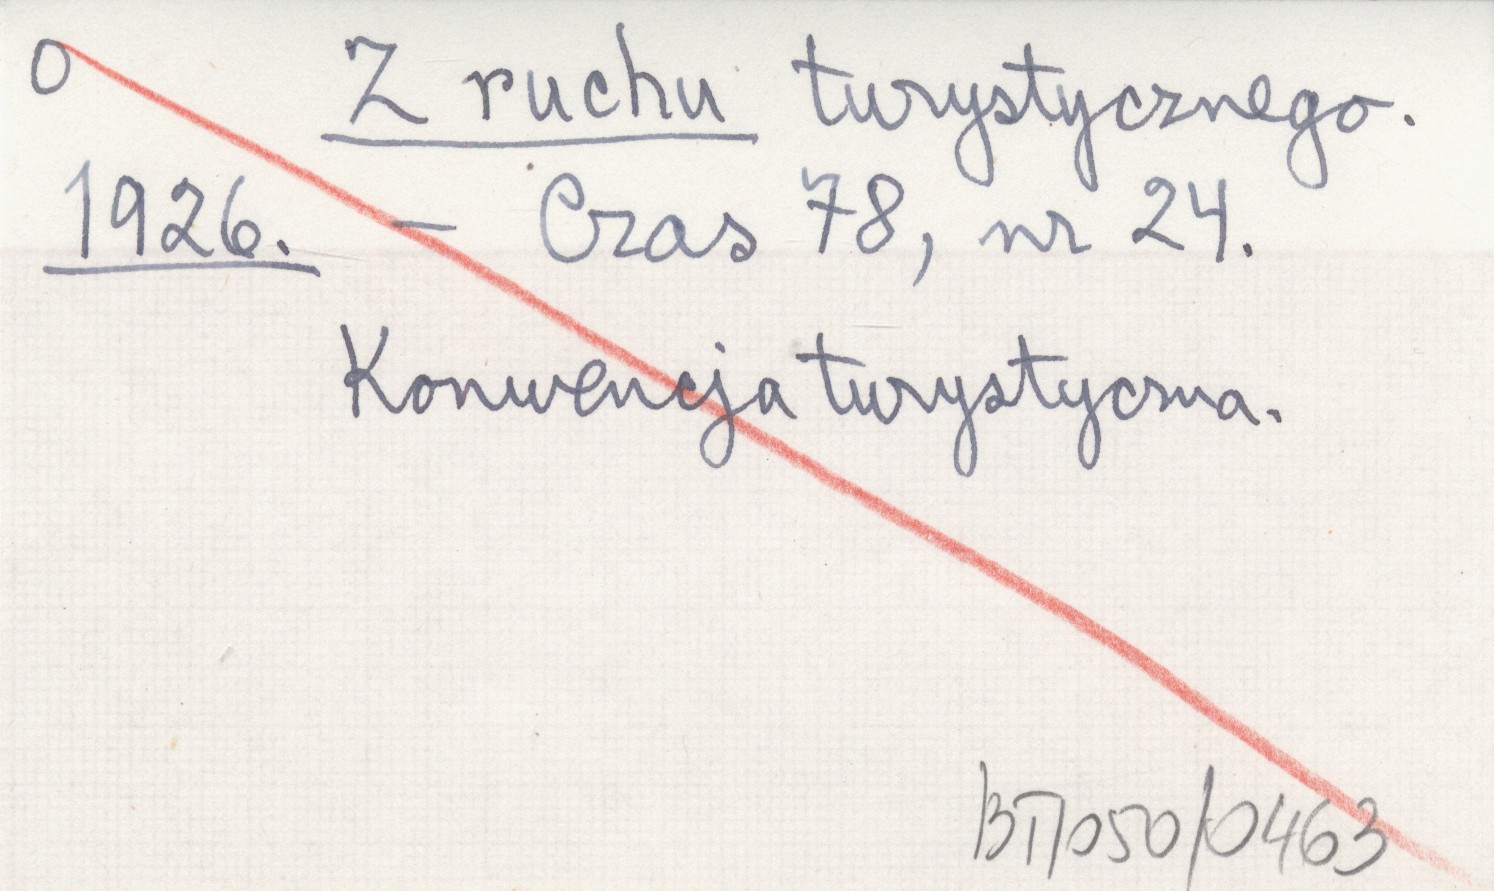 O Z ruchu turystycznego.
1926. – Czas 78, nr 24.
Konwencja turystyczna.
BT/050/0463